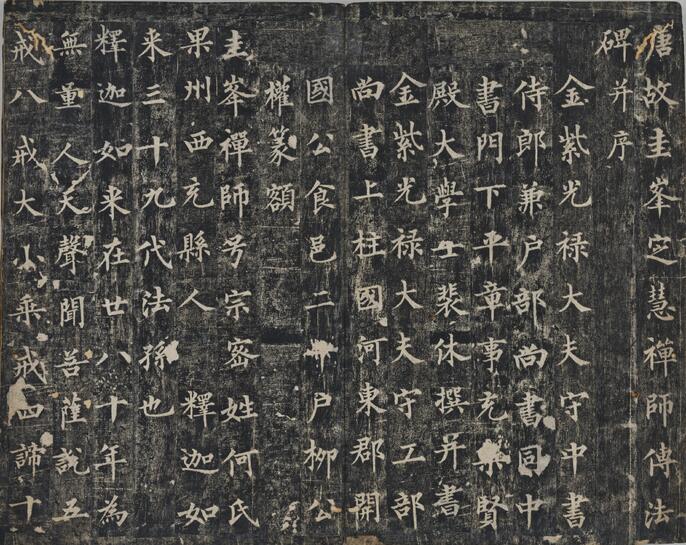 唐故圭峯定慧禪師傳法
碑并序
金紫光禄大夫守中書
侍郎兼户部尚書同中
書門下平章事充集賢
殿大學士裴休撰并書
金紫光禄大夫守工部
尚書上柱國河東郡開
國公食邑二千户柳公
權篆額
圭峯禪師号宗密姓何氏
果州西充縣人釋迦如
来三十九代法孫也
釋迦如来在世八十年為
無量人天聲聞菩薩說五
戒八戒大小乘戒四諦十